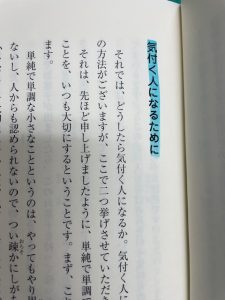 気付く人になるために
それでは、どうしたら気付く人になるか。気付く人に
の方法がございますが、ここで二つ挙げさせていただき
それは、先ほど申し上げましたように、単純で単調
ことを、いつも大切にするということです。まず、こ
ます。
単純で単調な小さなことというのは、やってもやり甲
ないし、人からも認められないので、つい疎かにしがち
おろそ